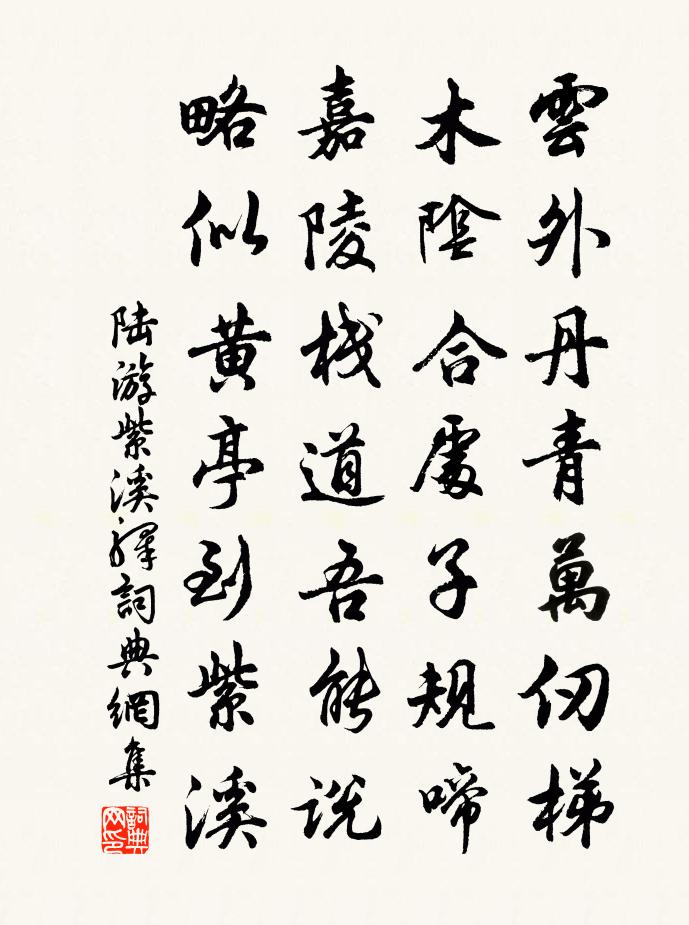 雲外丹青萬仞梯
木陰合處子規啼
嘉陵棧道吾能說
略似黃亭到紫溪
陸游紫溪驛詞典網集
詞典网印